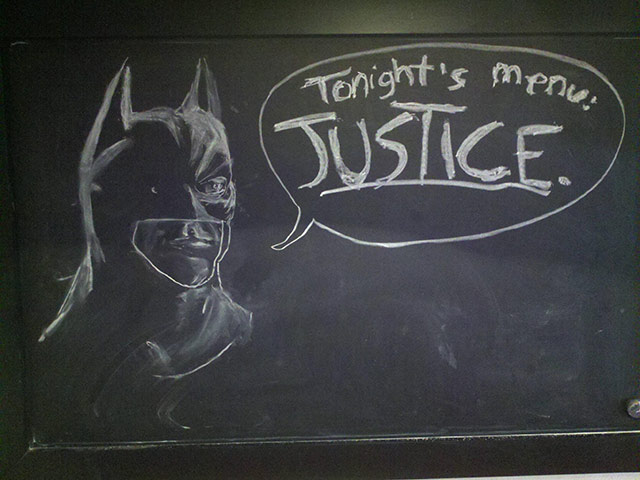 Tonight's menu:
JUSTICE.